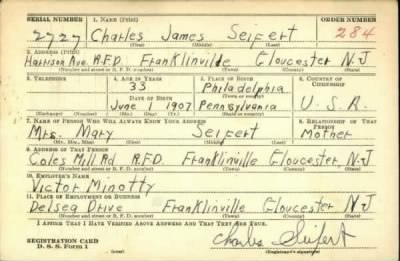 SERIAL NUMBER 1. NAME (Print) ORDER NUMBER
2727 Charles James Seifert 284
(First) (Middle) (Last)
2. ADDRESS (Print)
Harrison Ave. R.F.D. Franklinville Gloucester N.J
(Number and street or R. F. D. number) (Town) (County) (State)
3. TELEPHONE 4. AGE IN YEARS 5. PLACE OF BIRTH 6. COUNTRY OF CITIZENSHIP
33 Philadelphia
DATE OF BIRTH (Town or county)
June 1 1907 Pennsylvania U.S.A.
(Exchange) (Number) (Mo.) (Day) (Yr.) (State or country)
7. NAME OF PERSON WHO WILL ALWAYS KNOW YOUR ADDRESS 8. RELATIONSHIP OF THAT PERSON
Mrs. Mary Seifert Mother
(Mr., Mrs., Miss) (First) (Middle) (Last)
9. ADDRESS OF THAT PERSON
Coles Mill Rd R.F.D. Franklinville Gloucester N.J
(Number and street or R. F. D. number) (Town) (County) (State)
10. EMPLOYER'S NAME
Victor Minotty
11. PLACE OF EMPLOYMENT OR BUSINESS
Delsea Drive Franklinville Gloucester N.J
(Number and street or R. F. D. number) (Town) (County) (State)
I AFFIRM THAT I HAVE VERIFIED ABOVE ANSWERS AND THAT THEY ARE TRUE.
REGISTRATION CARD
D. S. S. Form 1 (over) Charles Seifert
(Registrant's signature)